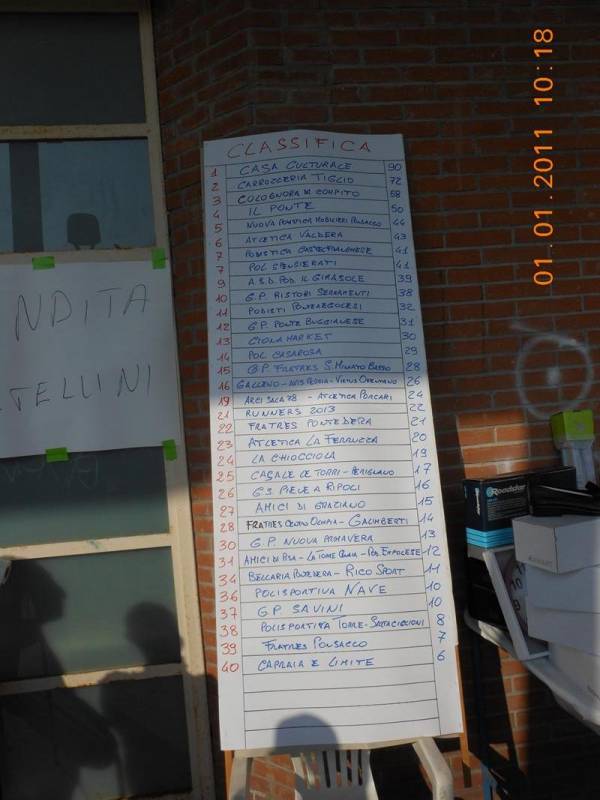 01.01.2011 10:18
CLASSIFICA
1 CASA CULTURALE 90
2 CARROZZERIA TIGLIO 72
3 COLOGNORA DI COMPITO 58
4 IL PONTE 50
5 NUOVA PODISTICA MOBILIERI PONSACCO 44
6 ATLETICA VALDERA 43
7 PODISTICA CASTELFRANCHESE 41
7 POL SPENSIERATI 41
9 A.S.D. POD. IL GIRASOLE 39
10 G.P. RISTORI SERRAMENTI 38
11 PODISTI PONTEREGOLESI 32
12 G.P. PONTE BUGGIANESE 31
13 CIONA MARKET 30
14 POL CASAROSA 29
15 G.P. FRATRES S. MINIATO BASSO 28
16 GALLENO - AVIS PECCIA - VIRTUS ORENTANO 26
19 ARCI SALA 78 - ATLETICA PORCARI 24
21 RUNNERS 2013 22
22 FRATRES PONTEDERA 21
23 ATLETICA LA FERRUZZA 20
24 LA CHIOCCIOLA 19
25 CASALE LE TORRI - PERIGNANO 17
26 G.S. PIEVE A RIPOLI 16
27 AMICI DI GRAZIANO 15
28 FRATRES - GALIMBERTI 14
30 G.P. NUOVA PRIMAVERA 13
31 AMICI DI PISA - LA TORRE - POD. EMPOLESE 12
34 BELLARIA PONTEDERA - RICO SPORT 11
36 POLISPORTIVA NAVE 10
37 G.P. SAVINI 10
38 POLISPORTIVA TORRE - 8
39 FRATRES PONSACCO 7
40 CAPRAIA E LIMITE 6
NDITA
TELLINI
Roadstar